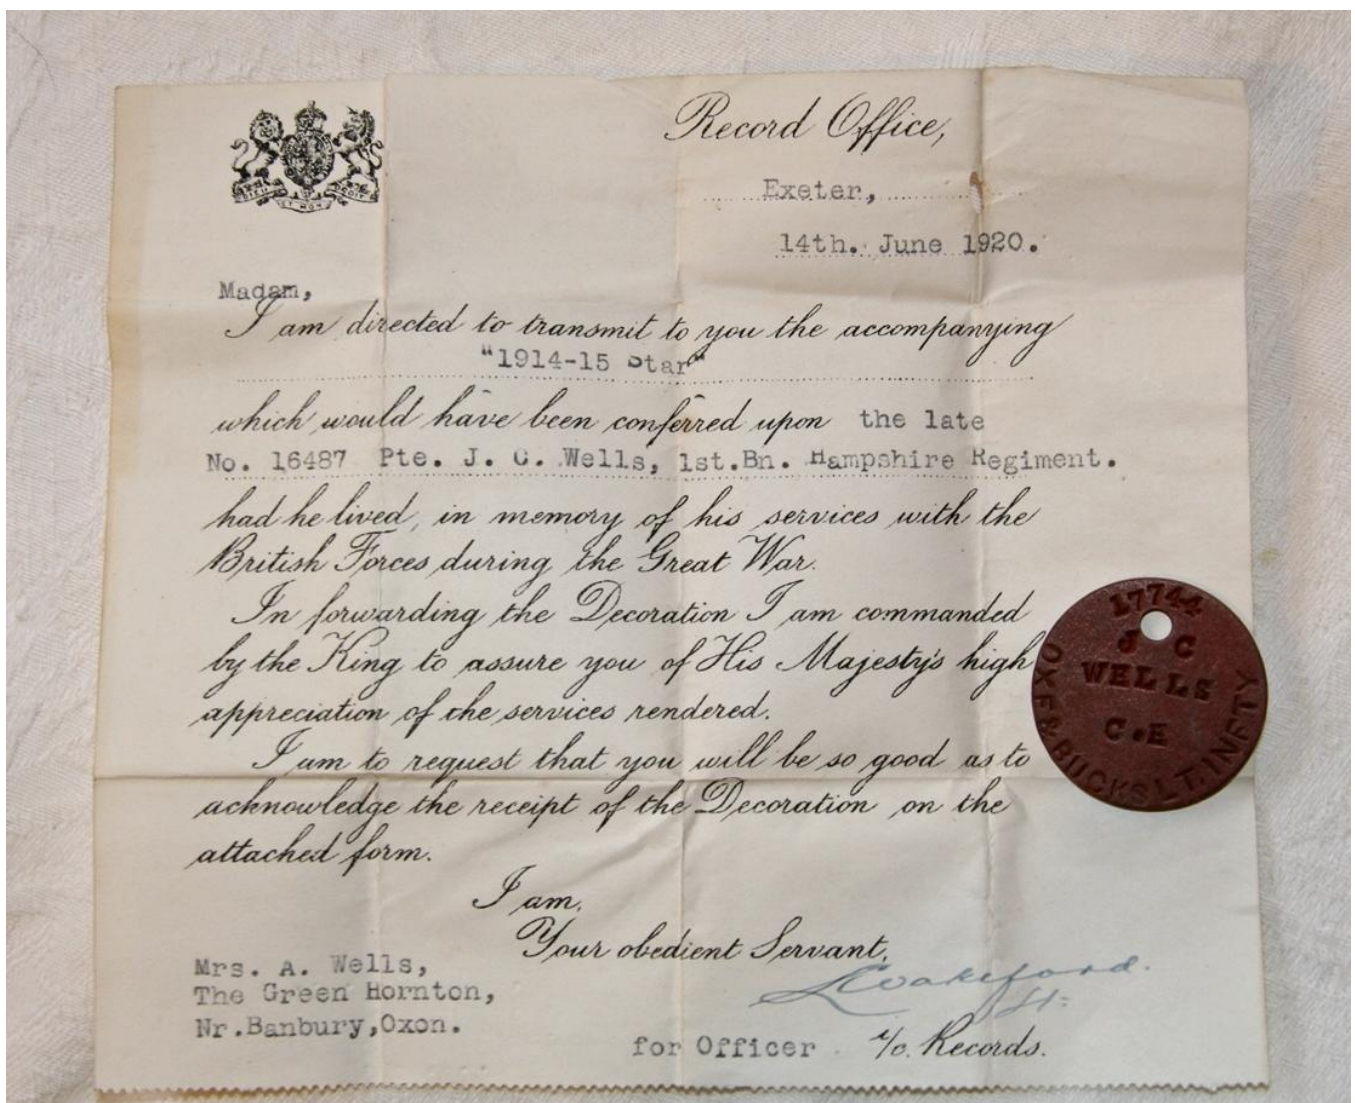 Record Office,
Exeter,
14th. June 1920.
Madam,
I am directed to transmit to you the accompanying
"1914-15 Star"
which would have been conferred upon the late
No. 16487 Pte. J. C. Wells, 1st.Bn. Hampshire Regiment.
had he lived, in memory of his services with the
British Forces during the Great War.
In forwarding the Decoration I am commanded
by the King to assure you of His Majesty's high
appreciation of the services rendered.
I am to request that you will be so good as to
acknowledge the receipt of the Decoration on the
attached form.
I am,
Your obedient Servant,
Mrs. A. Wells,
The Green Hornton,
Nr.Banbury,Oxon.
Lt:
for Officer i/c. Records.
17744
J C
WELLS
C.E
OXF & BUCKS LT. INFTY